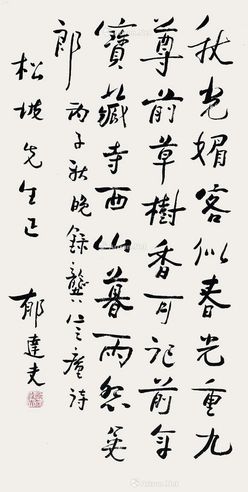 秋光媚客似春光重九
尊前草樹香可記前年
寶藏寺西山暮雨怨吳
郎
丙子秋晚錄龔定盦詩
松坡先生正
郁達夫